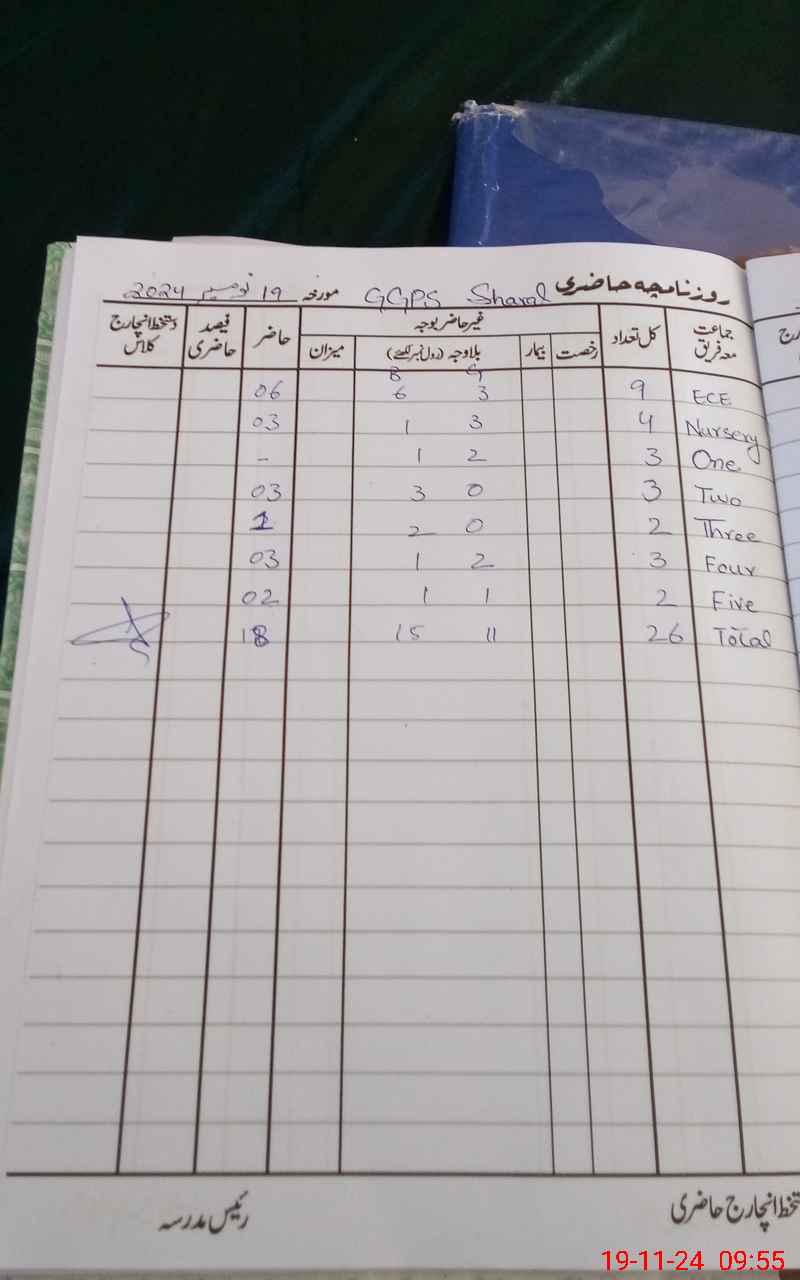 روزنامچہ حاضری GGPS Sharal مورخہ ۱۹ نومبر 2024
جماعت معہ فریق کل تعداد غیر حاضر بوجہ حاضر فیصد حاضری دستخط انچارج کلاس
رخصت بیمار بلاوجہ (رول نمبر لکھئے) میزان
G B
ECE 9 3 6 06
Nursery 4 3 1 03
One 3 2 1 -
Two 3 0 3 03
Three 2 0 2 1
Four 3 2 1 03
Five 2 1 1 02
Total 26 11 15 18
تخط انچارج حاضری رئیس مدرسہ
19-11-24 09:55